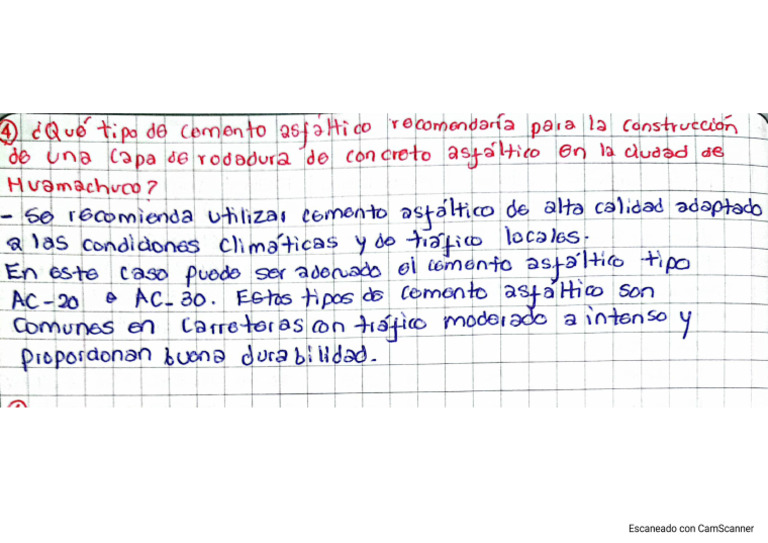 ④ ¿Qué tipo de cemento asfáltico recomendaría para la construcción
de una capa de rodadura de concreto asfáltico en la ciudad de
Huamachuco?
- Se recomienda utilizar cemento asfáltico de alta calidad adaptado
a las condiciones climáticas y de tráfico locales.
En este caso puede ser adecuado el cemento asfáltico tipo
AC-20 o AC-30. Estos tipos de cemento asfáltico son
comunes en carreteras con tráfico moderado a intenso y
proporcionan buena durabilidad.
Escaneado con CamScanner